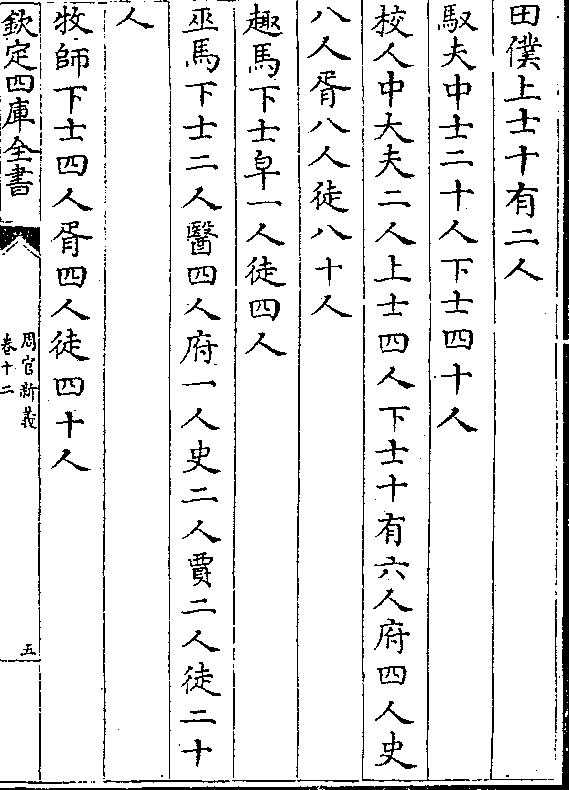 田僕上士十有二人
馭夫中士二十人下士四十人
校人中大夫二人上士四人下士十有六人府四人史
八人胥八人徒八十人
趣馬下士皁一人徒四人
巫馬下士二人醫四人府一人史二人賈二人徒二十
人
牧師下士四人胥四人徒四十人
欽定四庫全書
周官新義
卷十二
五